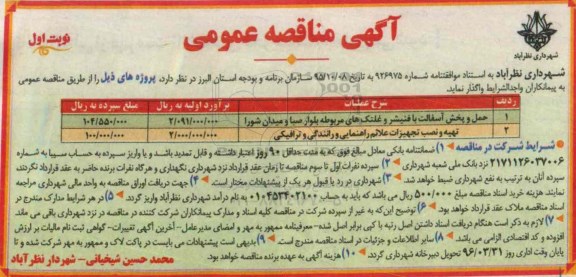 آگهی مناقصه عمومی
نوبت اول
شهرداری نظرآباد
شهرداری نظرآباد به استناد موافقتنامه شماره ۹۲۶۹۷۵ به تاریخ ۹۵/۱۰/۰۸ سازمان برنامه و بودجه استان البرز در نظر دارد، پروژه های ذیل را از طریق مناقصه عمومی
به پیمانکاران واجدالشرایط واگذار نماید.
ردیف شرح عملیات برآورد اولیه به ریال مبلغ سپرده به ریال
۱ حمل و پخش آسفالت با فنیشر و غلتک های مربوطه بلوار صبا و میدان شورا ۲/۰۹۱/۰۰۰/۰۰۰ ۱۰۴/۵۵۰/۰۰۰
۲ تهیه و نصب تجهیزات علائم راهنمایی و رانندگی و ترافیکی ۲/۰۰۰/۰۰۰/۰۰۰ ۱۰۰/۰۰۰/۰۰۰
شرایط شرکت در مناقصه ۱) ضمانتنامه بانکی معادل مبالغ فوق که به مدت حداقل ۹۰ روز اعتبار داشته و قابل تمدید باشد و یا واریز سپرده به حساب سیبا به شماره
۲۱۷۱۱۲۶۰۳۷۰۰۶ نزد بانک ملی شعبه شهرداری ۲) سپرده نفرات اول تا سوم مناقصه تا زمان عقد قرارداد نزد شهرداری نگهداری و هرگاه نفرات برنده حاضر به عقد قرارداد نگردند،
سپرده آنان به ترتیب به نفع شهرداری ضبط خواهد شد. ۳) شهرداری در رد یا قبول هر یک از پیشنهادات مختار است. ۴) جهت دریافت اوراق مناقصه به واحد مالی شهرداری مراجعه
نمایند. هزینه خرید اسناد مناقصه مبلغ ۵۰۰/۰۰۰ ریال می باشد که باید به حساب ۰۱۰۴۵۳۳۰۲۱۰۰۱ به نام درآمد شهرداری نظرآباد واریز گردد. ۵) در هر شرایط مدارک مندرج در
اسناد مناقصه ملاک عقد قرارداد خواهد بود. ۶) توضیح این که به غیر از سپرده شرکت در مناقصه کلیه اسناد و مدارک پیمانکاران شرکت کننده در مناقصه در نزد شهرداری باقی می ماند
۷) لازم به ذکر است هنگام دریافت اسناد داشتن اصل رتبه با کپی برابر اصل شده-معرفینامه ممهور به مهر و امضای مدیرعامل - آخرین آگهی تغییرات- گواهی ثبت نام مالیات بر ارزش
افزوده و کد اقتصادی الزامی می باشد. ۸) سایر اطلاعات و جزئیات در اسناد مناقصه مندرج است. ۹) بدیهی است پیشنهادات می بایست در پاکت لاک و ممهور به مهر شرکت شده و تا
پایان وقت اداری روز ۹۶/۰۳/۳۱ تحویل دبیرخانه شهرداری گردد. ۱۰) هزینه آگهی به عهده برنده مناقصه خواهد بود.
محمد حسین شیخیانی- شهردار نظرآباد